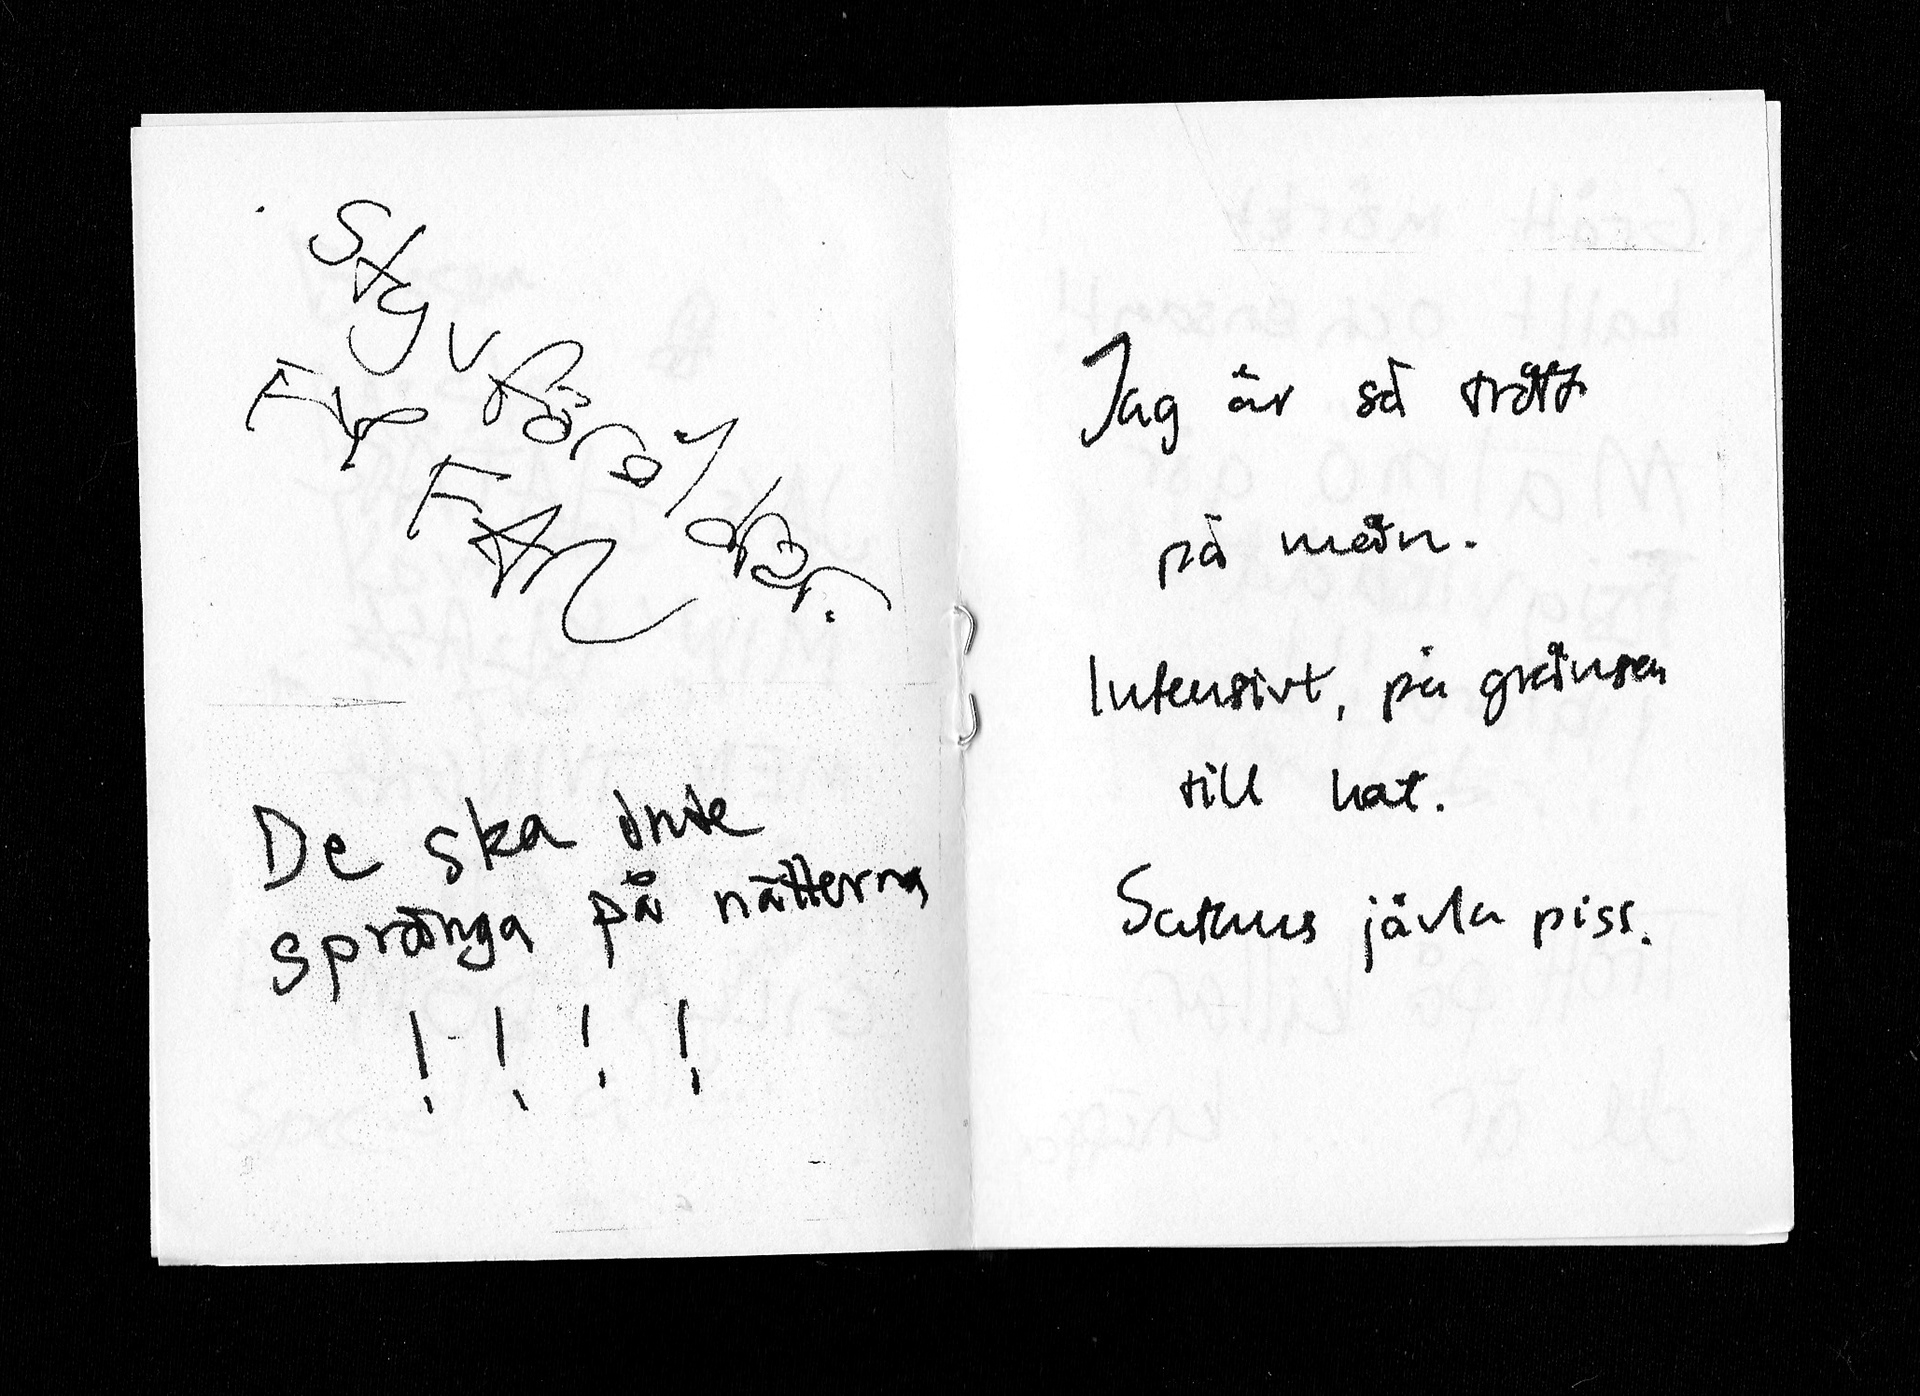 Styvföräldrar.
Fy FAN
De ska inte
spränga på nätterna
! ! ! !
Jag är så trött
på män.
Intensivt, på gränsen
till hat.
Satans jävla piss.